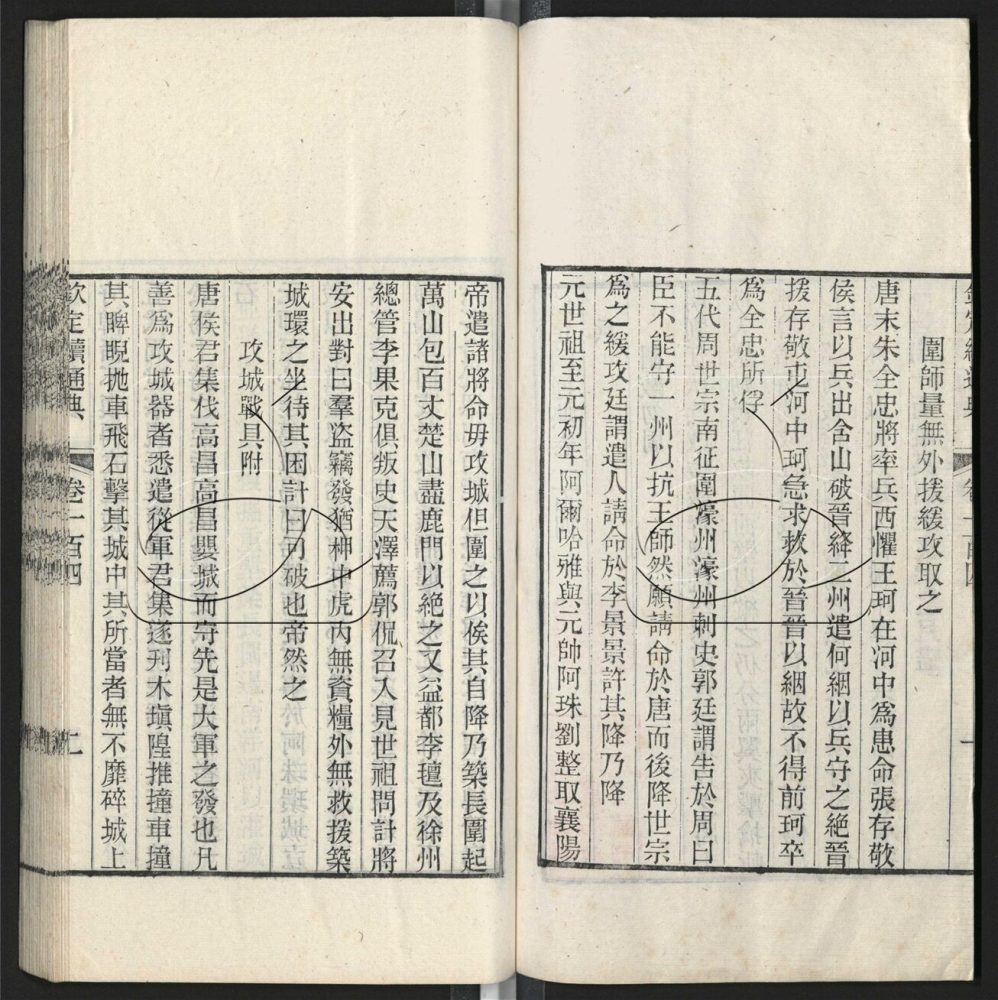 欽定續通典 卷一百四
圍師量無外援緩攻取之
唐末朱全忠將率兵西懼王珂在河中爲患命張存敬
侯言以兵出含山破晉絳二州遣何絪以兵守之絶晉
援存敬屯河中珂急求救於晉晉以絪故不得前珂卒
爲全忠所俘
五代周世宗南征圍濠州濠州刺史郭廷謂吿於周曰
臣不能守一州以抗王師然願請命於唐而後降世宗
爲之緩攻廷謂遣人請命於李景景許其降乃降
元世祖至元初年阿爾哈雅與元帥阿珠劉整取襄陽
帝遣諸將命毋攻城但圍之以俟其自降乃築長圍起
萬山包百丈楚山盡鹿門以絶之又益都李璮及徐州
總管李果克俱叛史天澤薦郭侃召入見世祖問計將
安出對曰羣盗竊發猶柙中虎内無資糧外無救援築
城環之坐待其困計日可破也帝然之
攻城戰具附
唐侯君集伐高昌高昌嬰城而守先是大軍之發也凡
善爲攻城器者悉遣從軍君集遂刋木塡隍推撞車撞
其睥睨抛車飛石擊其城中其所當者無不靡碎城上
欽定續通典 卷一百四 七